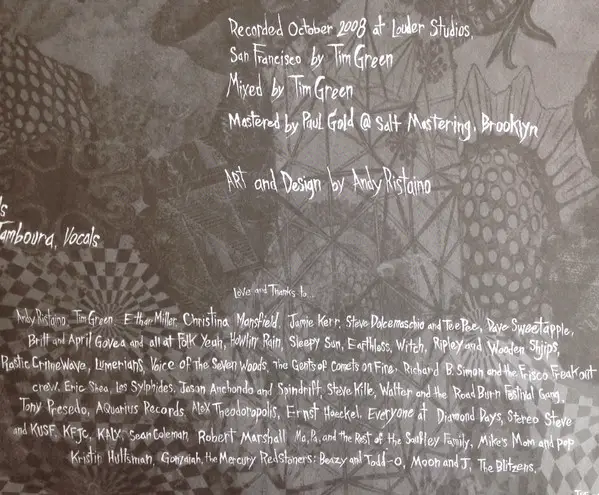 Recorded October 2008 at Louder Studios,
San Francisco by Tim Green
Mixed by Tim Green
Mastered by Paul Gold @ Salt Mastering, Brooklyn
Art and Design by Andy Ristaino
ls
Tamboura, Vocals
Love and Thanks to...
Andy Ristaino, Tim Green, Ethan Miller, Christina Mansfield, Jamie Kerr, Steve Dolcemaschio and Tee Pee, Dave Sweetapple,
Britt and April Govea and all at Folk Yeah, Howlin Rain, Sleepy Sun, Earthless, Witch, Ripley and Wooden Shjips,
Plastic Crimewave, Lumerians, Voice of the Seven Woods, the Gents of Comets on Fire, Richard B. Simon and the Frisco Freakout
crew, Eric Shea, Los Sylphides, Jason Anchondo and Spindrift, Steve Kille, Walter and the Road Burn Festival Gang,
Tony Presedo, Aquarius Records, Alex Theodoropolis, Ernst Haeckel, Everyone at Diamond Days, Stereo Steve
and KUSF, KFJC, KALX, Sean Coleman, Robert Marshall, Ma, Pa, and the Rest of the Family, Mike's Mom and pop
Kristin Hultsman, Gonzaiah, the Mercury Redstoners: Beazy and Todd-O, Moon and J, The Blitzens,